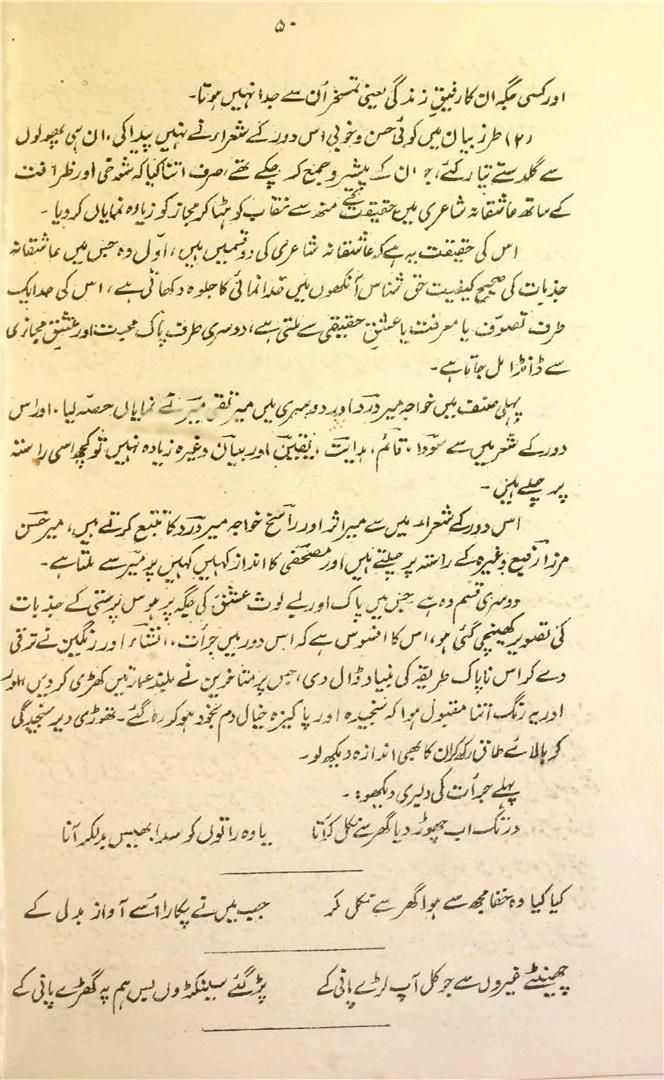 ۵۰
اور کسی جگہ ان کا رفیقِ زندگی یعنی تمسخر اُن سے جدا نہیں ہوتا۔
(۲) طرز بیان میں کوئی حسن و خوبی اس دور کے شعراء نے نہیں پیدا کی۔ ان ہی پھولوں
سے گلدستے تیار کئے، جو ان کے پیشرو جمع کر چکے تھے، صرف اتنا کیا کہ شوخی اور ظرافت
کے ساتھ عاشقانہ شاعری میں حقیقت کے منھ سے نقاب کو ہٹا کر مجاز کو زیادہ نمایاں کر دیا۔
اس کی حقیقت یہ ہے کہ عاشقانہ شاعری کی دو قسمیں ہیں، اوّل وہ جس میں عاشقانہ
جذبات کی صحیح کیفیت حق شناس آنکھوں میں خدانمائی کا جلوہ دکھاتی ہے، اس کی حد ایک
طرف تصوّف یا معرفت یا عشقِ حقیقی سے ملتی ہے، دوسری طرف پاک محبت اور عشقِ مجازی
سے ڈانڈا مل جاتا ہے۔
پہلی صنف میں خواجہ میر درد اور دوسری میں میر تقی میر نے نمایاں حصہ لیا۔ اور اس
دور کے شعر میں سے سودا، قائم، ہدایت، یقین اور بیان وغیرہ زیادہ نہیں تو کچھ اسی راستہ
پر چلے ہیں۔
اس دور کے شعراء میں سے میر اثر اور راسخ خواجہ میر درد کا تتبع کرتے ہیں، میر حسن
مرزا رفیع وغیرہ کے راستہ پر چلتے ہیں اور مصحفی کا انداز کہیں کہیں پر میر سے ملتا ہے۔
دوسری قسم وہ ہے جس میں پاک اور بے لوث عشق کی جگہ پر ہوس پرستی کے جذبات
کی تصویر کھینچی گئی ہو، اس کا افسوس ہے کہ اس دور میں جرأت، انشاء اور رنگین نے ترقی
دے کر اس ناپاک طریقہ کی بنیاد ڈال دی، جس پر متاخرین نے بلند عمارتیں کھڑی کر دیں
اور یہ رنگ اتنا مقبول ہوا کہ سنجیدہ اور پاکیزہ خیال دم بخود ہو کر رہ گئے۔ تھوڑی دیر سنجیدگی
کو بالائے طاق رکھ کر ان کا بھی اندازہ دیکھ لو۔
پہلے جرأت کی دلیری دیکھو:۔
در تک اب چھوڑ دیا گھر سے نکل کر آنا یا وہ راتوں کو سدا بھیس بدلکر آنا
کیا کیا وہ خفا مجھ سے ہوا گھر سے نکل کر جب میں نے پکارا اُسے آواز بدل کے
چھینٹے غیروں سے جو کل آپ لڑے پانی کے پڑ گئے سینکڑوں بس ہم پہ گھڑے پانی کے